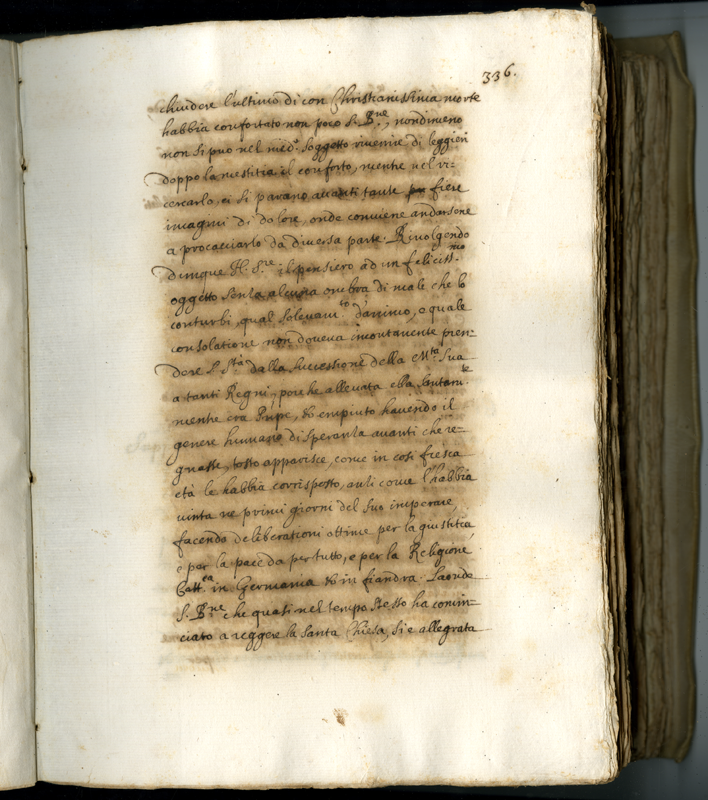 336.
chiudere l'ultimo di con Christianissima morte
habbia confortato non poco S. B.ne, nondimeno
non si può nel med.o soggetto rivenire di leggieri
doppo la mestitia il conforto, mentre nel ri-
cercarlo, ci si parano avanti tante fiere
imagini di dolore, onde conviene andarsene
a procacciarlo da diversa parte. Rivolgendo
dunque N. S.re il pensiero ad un feliciss.mo
oggetto senza alcuna ombra di male che lo
conturbi, qual sollevam.to d'animo, o quale
consolatione non doveva incontanente pren-
dere S. S.tà dalla successione della M.tà Sua
a tanti Regni, poiche allevata ella santam.te
mentre era Prñpe, et empiuto havendo il
genere humano di speranza avanti che re-
gnasse, tosto apparisce, come in così fresca
età le habbia corrisposto, anzi come l'habbia
vinta ne primi giorni del suo imperare,
facendo deliberationi ottime per la giustitia,
e per la pace da per tutto, e per la Religione
Catt.ca in Germania et in fiandra. Laonde
S. B.ne che quasi nel tempo stesso ha comin-
ciato a reggere la Santa Chiesa, si è allegrata